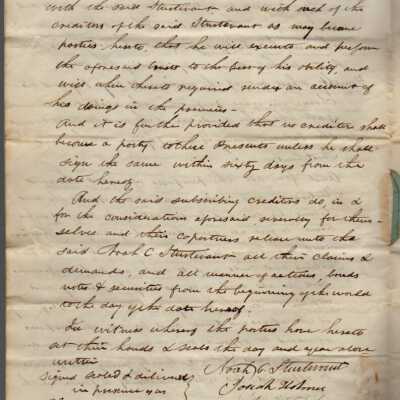 with the said Sturtevant and with each of the
creditors of the said Sturtevant as may become
parties hereto, that he will execute and perform
the aforesaid trust to the best of his ability, and
will when thereto required render an account of
his doings in the premises.-
And it is further provided that no creditor shall
become a party to these presents unless he shall
sign the same within sixty days from the
date hereof.
And the said subscribing creditors do, in &
for the consideration aforesaid, severally for them-
selves and their copartners release unto the
said Noah C Sturtevant all their claims &
demands, and all manner of actions, bonds
notes & securities from the beginning of the world
to the day of the date hereof.
In witness whereof the parties have hereto
set their hands & seals the day and year above
written
Signed sealed & delivered
in presence of us
Noah C. Sturtevant
Josiah